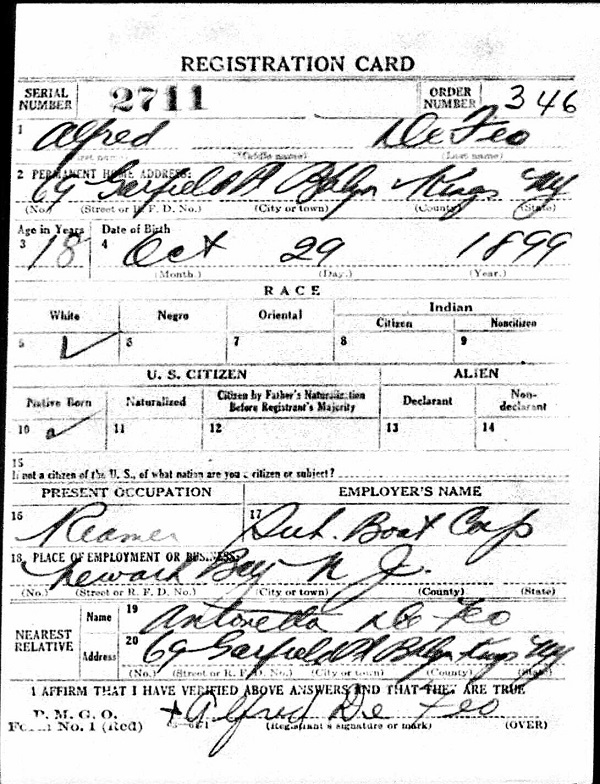 REGISTRATION CARD
SERIAL NUMBER 2711 ORDER NUMBER 346
1 Alfred De Feo
(First name) (Middle name) (Last name)
2 PERMANENT HOME ADDRESS:
69 Garfield Pl Bklyn Kings NY
(No.) (Street or R. F. D. No.) (City or town) (County) (State)
Age in Years Date of Birth
3 18 4 Oct 29 1899
(Month.) (Day.) (Year.)
RACE
White Negro Oriental Indian
Citizen Noncitizen
5 ✓ 6 7 8 9
U. S. CITIZEN ALIEN
Native Born Naturalized Citizen by Father's Naturalization Before Registrant's Majority Declarant Non-declarant
10 11 12 13 14
15
If not a citizen of the U. S., of what nation are you a citizen or subject?
PRESENT OCCUPATION EMPLOYER'S NAME
16 Reamer 17 Sub. Boat Corp
18 PLACE OF EMPLOYMENT OR BUSINESS:
Newark Bay N J.
(No.) (Street or R. F. D. No.) (City or town) (County) (State)
NEAREST RELATIVE
Name 19 Antonetta De Feo
Address 20 69 Garfield Pl Bklyn Kings NY
(No.) (Street or R. F. D. No.) (City or town) (County) (State)
I AFFIRM THAT I HAVE VERIFIED ABOVE ANSWERS AND THAT THEY ARE TRUE
P. M. G. O.
Form No. 1 (Red) + Alfred De Feo
(Registrant's signature or mark) (OVER)